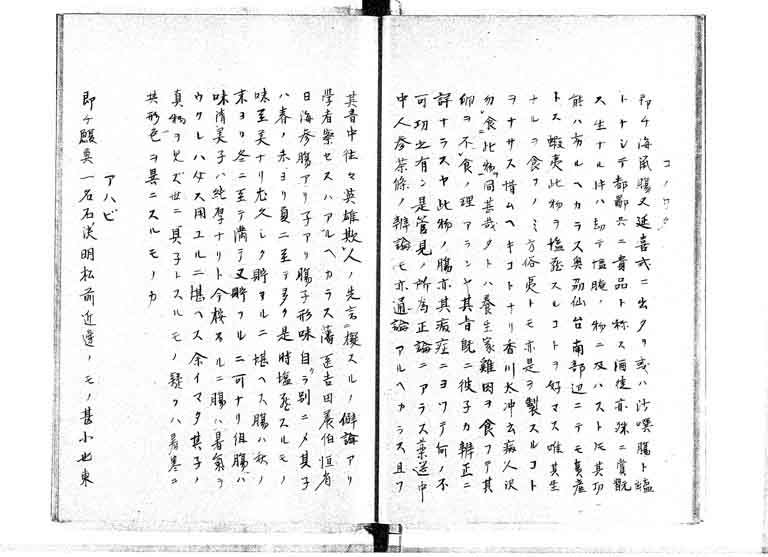 コノワタ
即チ海鼠腸又延喜式ニ出タリ或ハ沙噀腸ト塩
トナシテ都鄙共ニ貴品ト称ス酒徒亦殊ニ賞翫
ス生ナル件ハ却テ塩腌ノ物ニ及ハスト凡其功
能ハ有ルヘカラス奥刕仙台南部辺ニテモ真産
トス蝦夷此物ヲ塩蔵スルコトヲ好マス唯其生
ナルヲ食フノミ方俗夷トモ亦是ヲ製スルコト
ヲナサス惜ムヘキコトナリ香川太冲云病人没
勿食此物同其哉タトハ養生家雞肉ヲ食フテ其
卵ヲ不食ノ理アランヤ其旨既ニ彼子カ辨正ニ
詳ナラスヤ此物ノ腸亦其病症ニヨツテ何ノ不
可功之有ン是管見ノ所為正論ニアラス薬選中
中人参茶條ノ辨論モ亦通論アルヘカラス且フ
其書中往々英雄欺人ノ先言ニ擬スルノ僻論アリ
学者察セスハアルヘカラス藩医吉田養伯恒省
曰海参腸アリ子アリ腸子形味自ラ別ニメ其子
ハ春ノ末ヨリ夏ニ至テ多ク是時塩蔵スルモノ
味至美ナリ尤久シク貯ヨルニ堪ヘス腸ハ秋ノ
末ヨリ冬ニ至テ満テ又貯フルニ可ナリ但腸ハ
味清美子ハ純厚ナリト今按スルニ腸ハ暑気ヲ
ウクレハ失ス用ユルニ堪ヘス余イマタ其子ノ
真物ヲ見ズ世ニ真子トスルモノ疑クハ暑寒ニ
共形色ヲ異ニスルモノカ
アハビ
即チ鰒臭一名石决明松前近邊ノモノ甚小也東